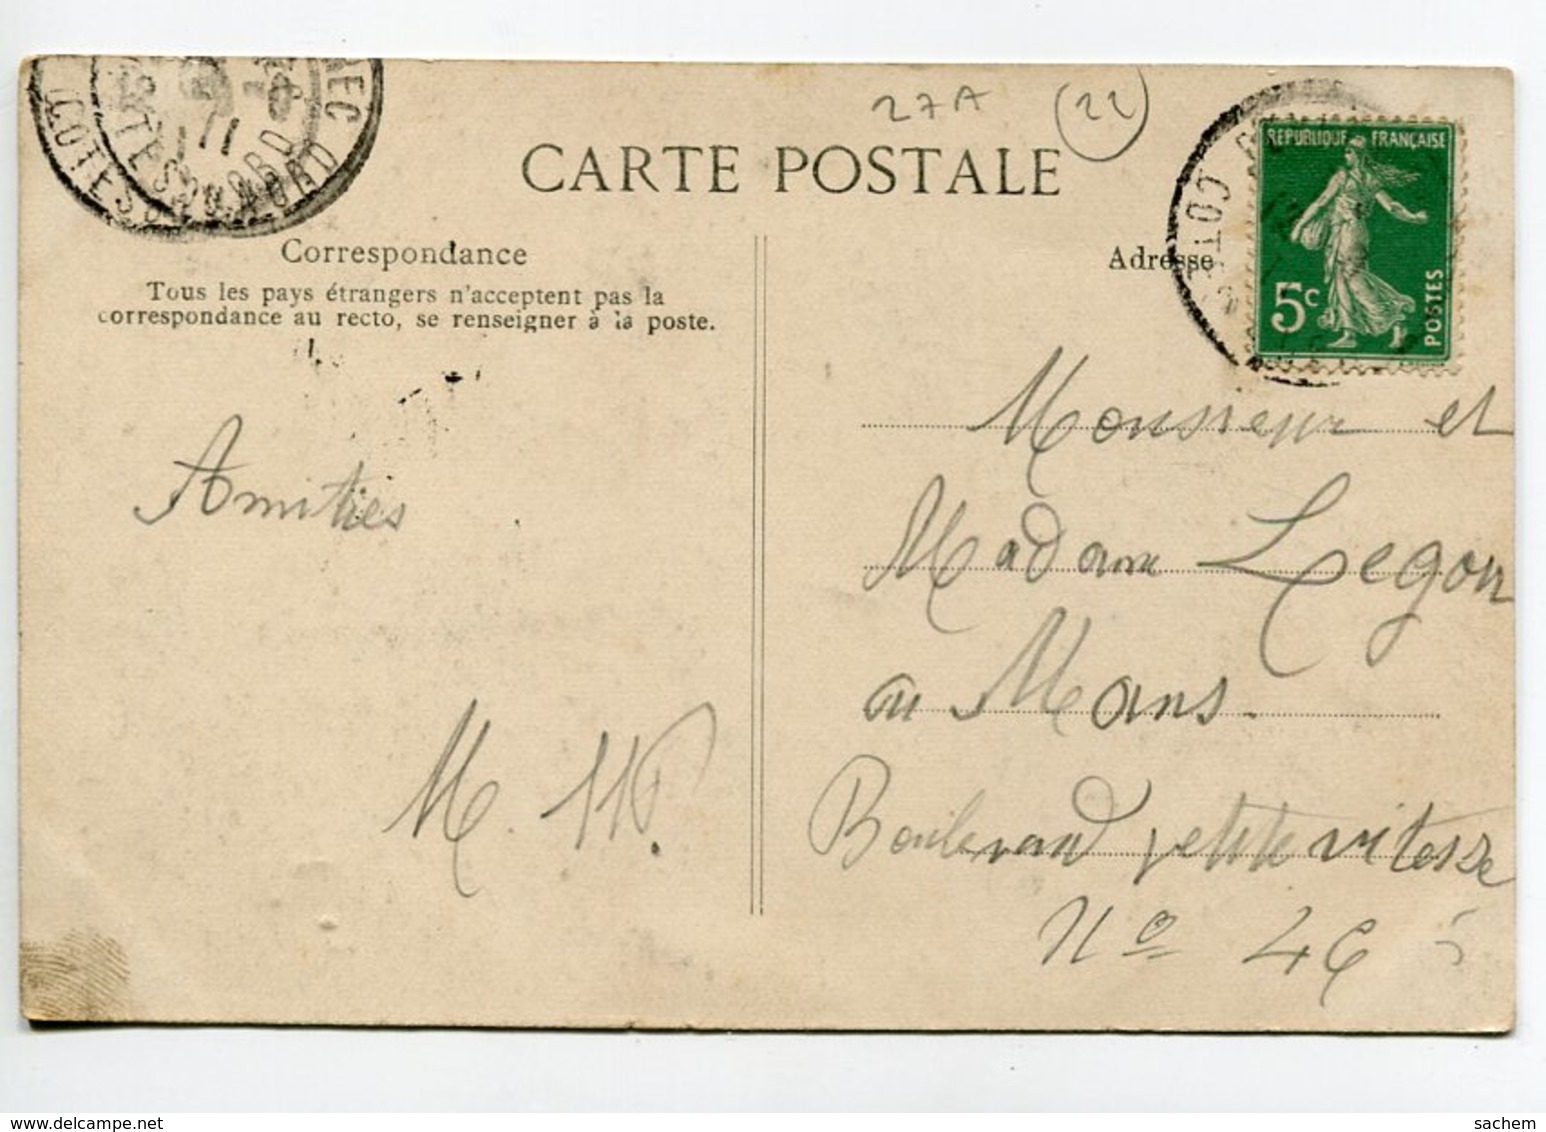 27A (22)
CARTE POSTALE
REC
COTES DU NORD
11
COTE
REPUBLIQUE FRANÇAISE
5c
POSTES
Correspondance
Tous les pays étrangers n'acceptent pas la
correspondance au recto, se renseigner à la poste.
Adresse
Amitiés
M.
Monsieur et
Madame Legon
au Mans.
Boulevard petite vitesse
No 46
sachem